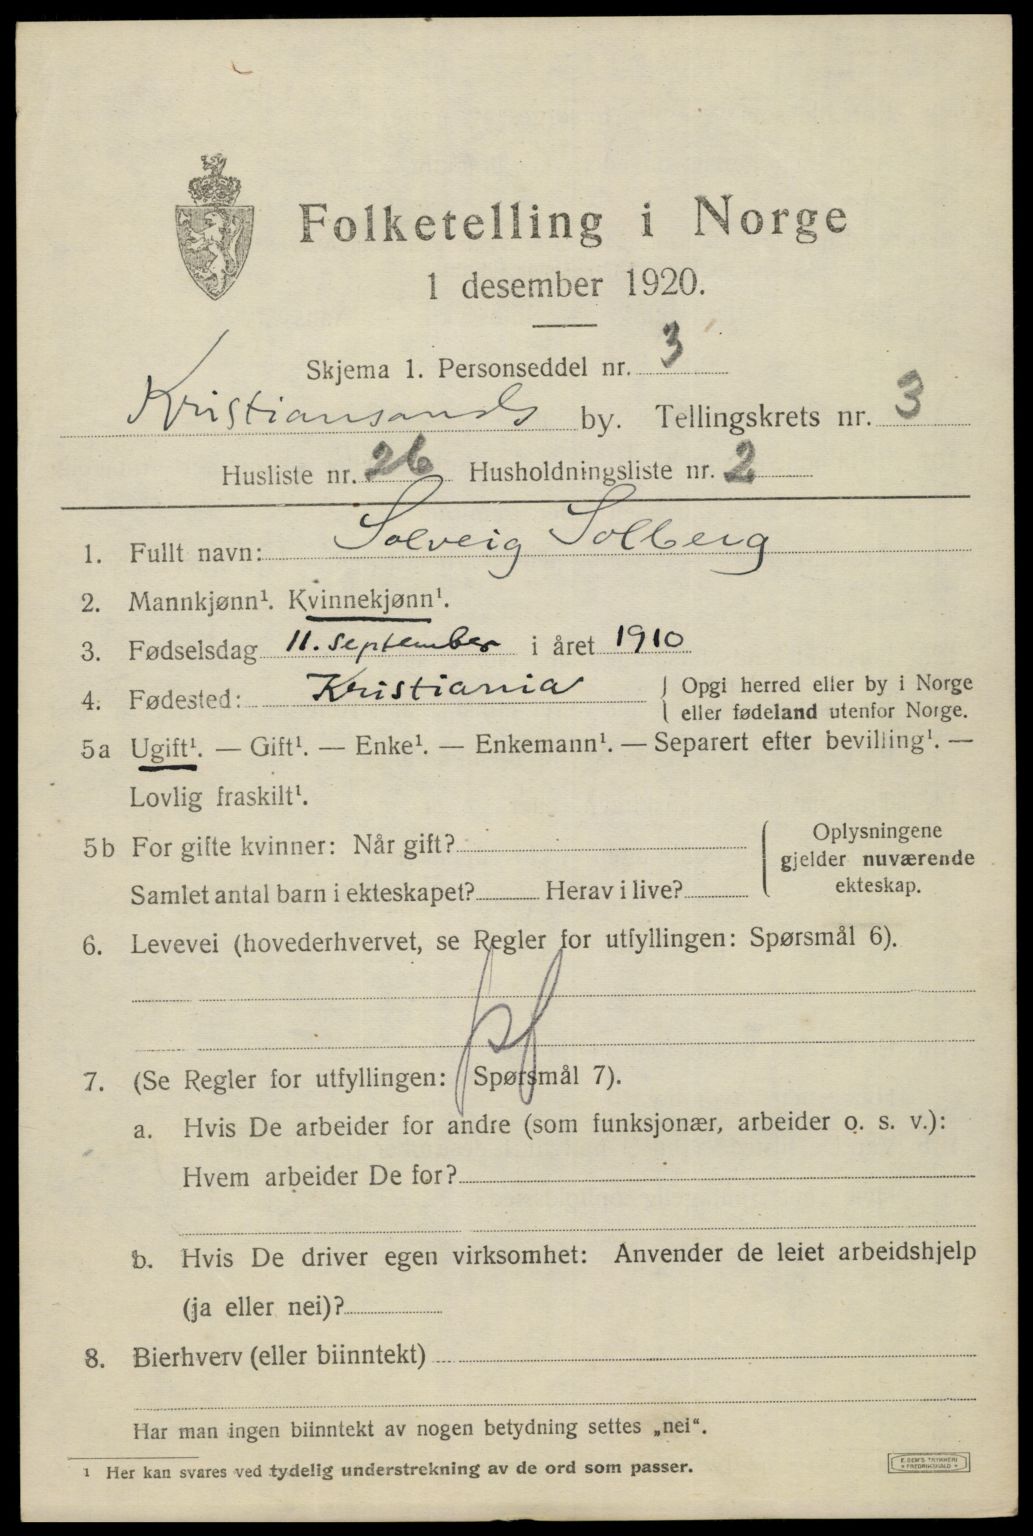 Folketelling i Norge
1 desember 1920.
Skjema 1. Personseddel nr. 3
Kristiansands by. Tellingskrets nr. 3
Husliste nr. 26 Husholdningsliste nr. 2
1. Fullt navn: Solveig Solberg
2. Mannkjønn¹. Kvinnekjønn¹.
3. Fødselsdag 11. september i året 1910
4. Fødested: Kristiania
Opgi herred eller by i Norge
eller fødeland utenfor Norge.
5a Ugift¹. — Gift¹. — Enke¹. — Enkemann¹. — Separert efter bevilling¹. —
Lovlig fraskilt¹.
5b For gifte kvinner: Når gift?
Samlet antal barn i ekteskapet? Herav i live?
Oplysningene
gjelder nuværende
ekteskap.
6. Levevei (hovederhvervet, se Regler for utfyllingen: Spørsmål 6).
7. (Se Regler for utfyllingen: Spørsmål 7).
a. Hvis De arbeider for andre (som funksjonær, arbeider o. s. v.):
Hvem arbeider De for?
b. Hvis De driver egen virksomhet: Anvender de leiet arbeidshjelp
(ja eller nei)?
8. Bierhverv (eller biinntekt)
Har man ingen biinntekt av nogen betydning settes „nei“.
¹ Her kan svares ved tydelig understrekning av de ord som passer.
E. SEM'S TRYKKERI
FREDRIKSHALD